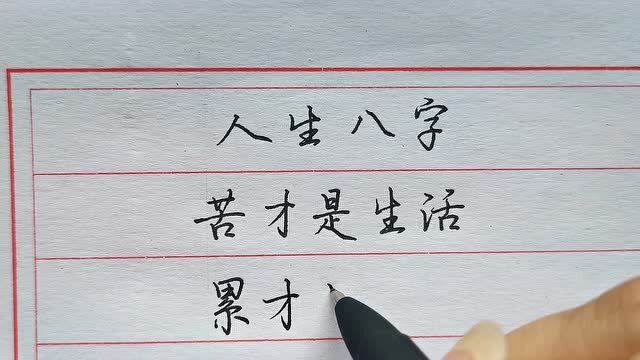 人生八字
苦才是生活
累才